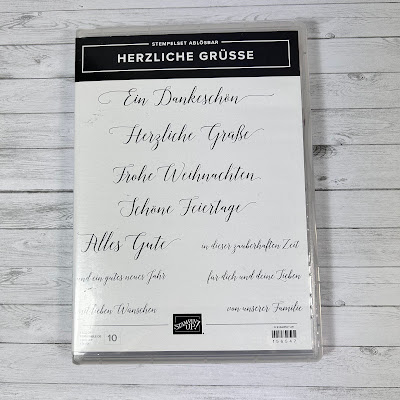 STEMPELSET ABLÖSBAR
HERZLICHE GRÜSSE
Ein Dankeschön
Herzliche Grüße
Frohe Weihnachten
Schöne Feiertage
Alles Gute
in dieser zauberhaften Zeit
und ein gutes neues Jahr
für dich und deine Lieben
mit lieben Wünschen
von unserer Familie
STAMPIN' UP!
10